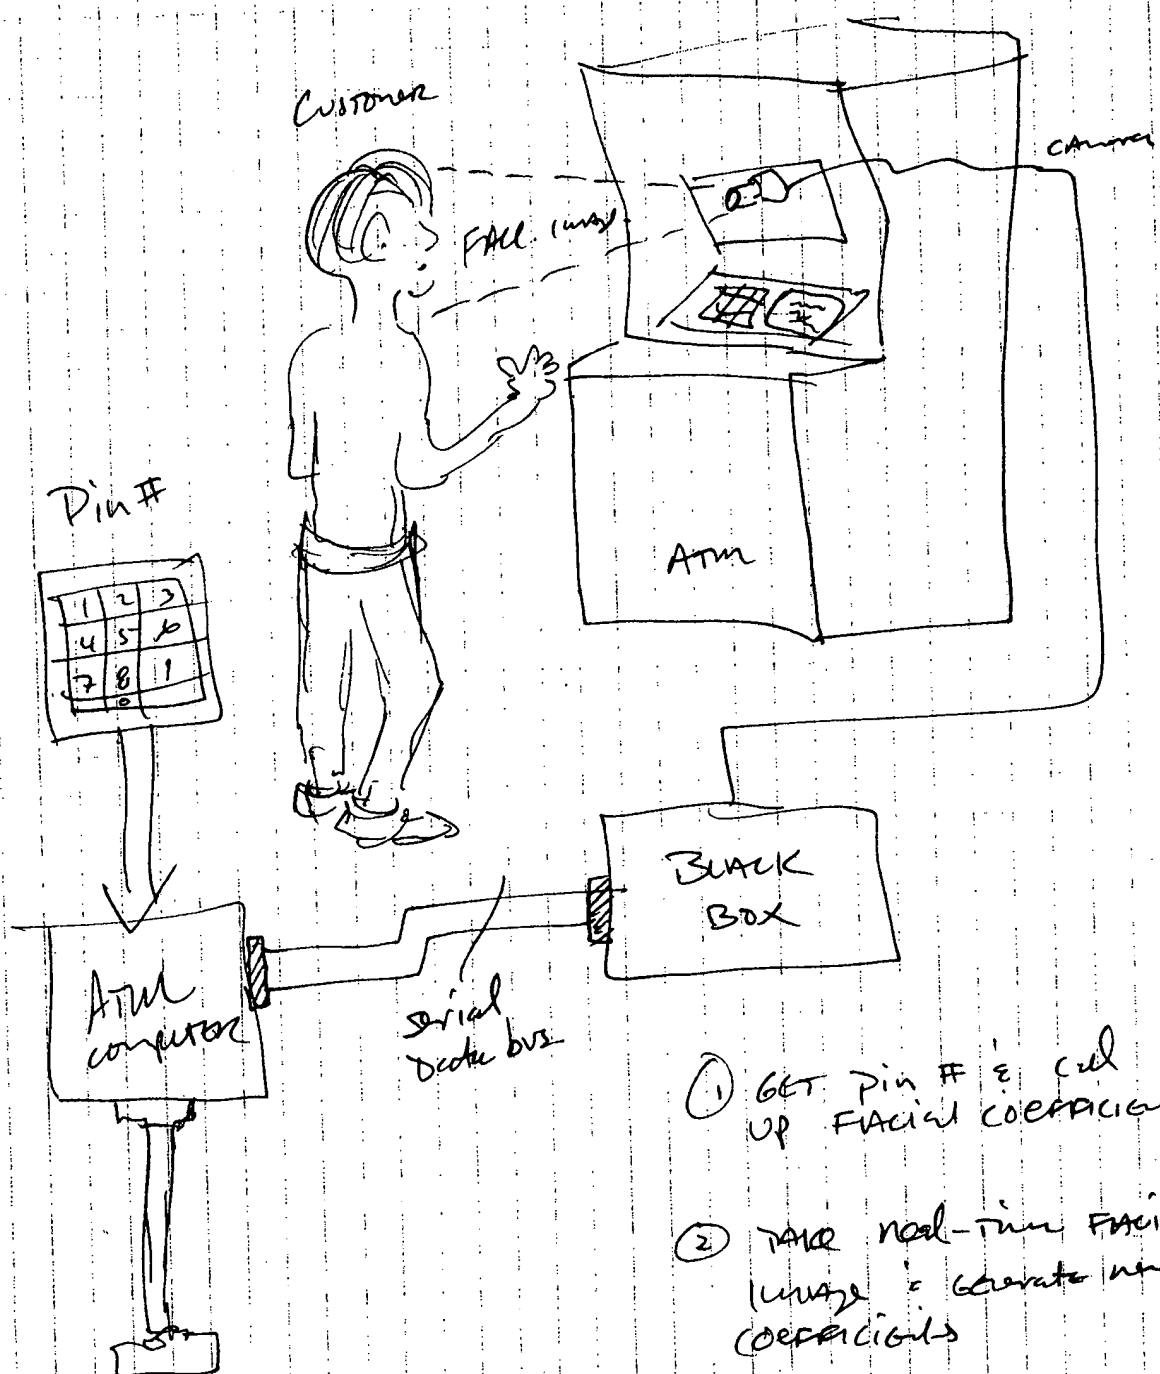 CUSTOMER
CAMERA
FACE IMAGE
Pin #
ATM
1 2 3
4 5 6
7 8 9
0
BLACK
BOX
ATM
computer
serial
Data bus
① GET pin # & call
UP FACIAL COEFFICIEN
② TAKE real-time FACI
IMAGE & Generate new
COEFFICIENTS